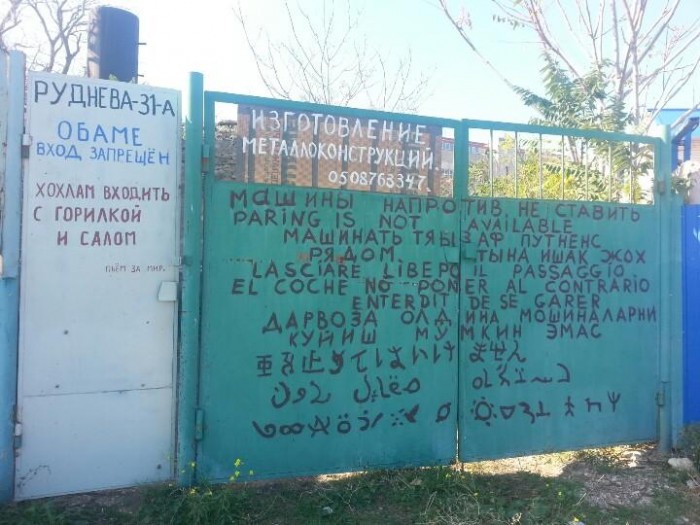 РУДНЕВА-31-А
ОБАМЕ
ВХОД ЗАПРЕЩЁН
ХОХЛАМ ВХОДИТЬ
С ГОРИЛКОЙ
И САЛОМ
ПЬЁМ ЗА МИР.
ИЗГОТОВЛЕНИЕ
МЕТАЛЛОКОНСТРУКЦИЙ.
0508763347.
МАШИНЫ НАПРОТИВ НЕ СТАВИТЬ
PARING IS NOT AVAILABLE
МАШИНАТЬ ТЯЫЗАФ ПУТНЕНС
РЯДОМ ТЫНА ИШАК ЖОХ
LASCIARE LIBERO IL PASSAGGIO
EL COCHE NO PONER AL CONTRARIO
ENTERDIT DE SE GARER
ДАРВОЗА ОЛДИНА МОШИНАЛАРНИ
КУЙИШ МУМКИН ЭМАС
てはいけません